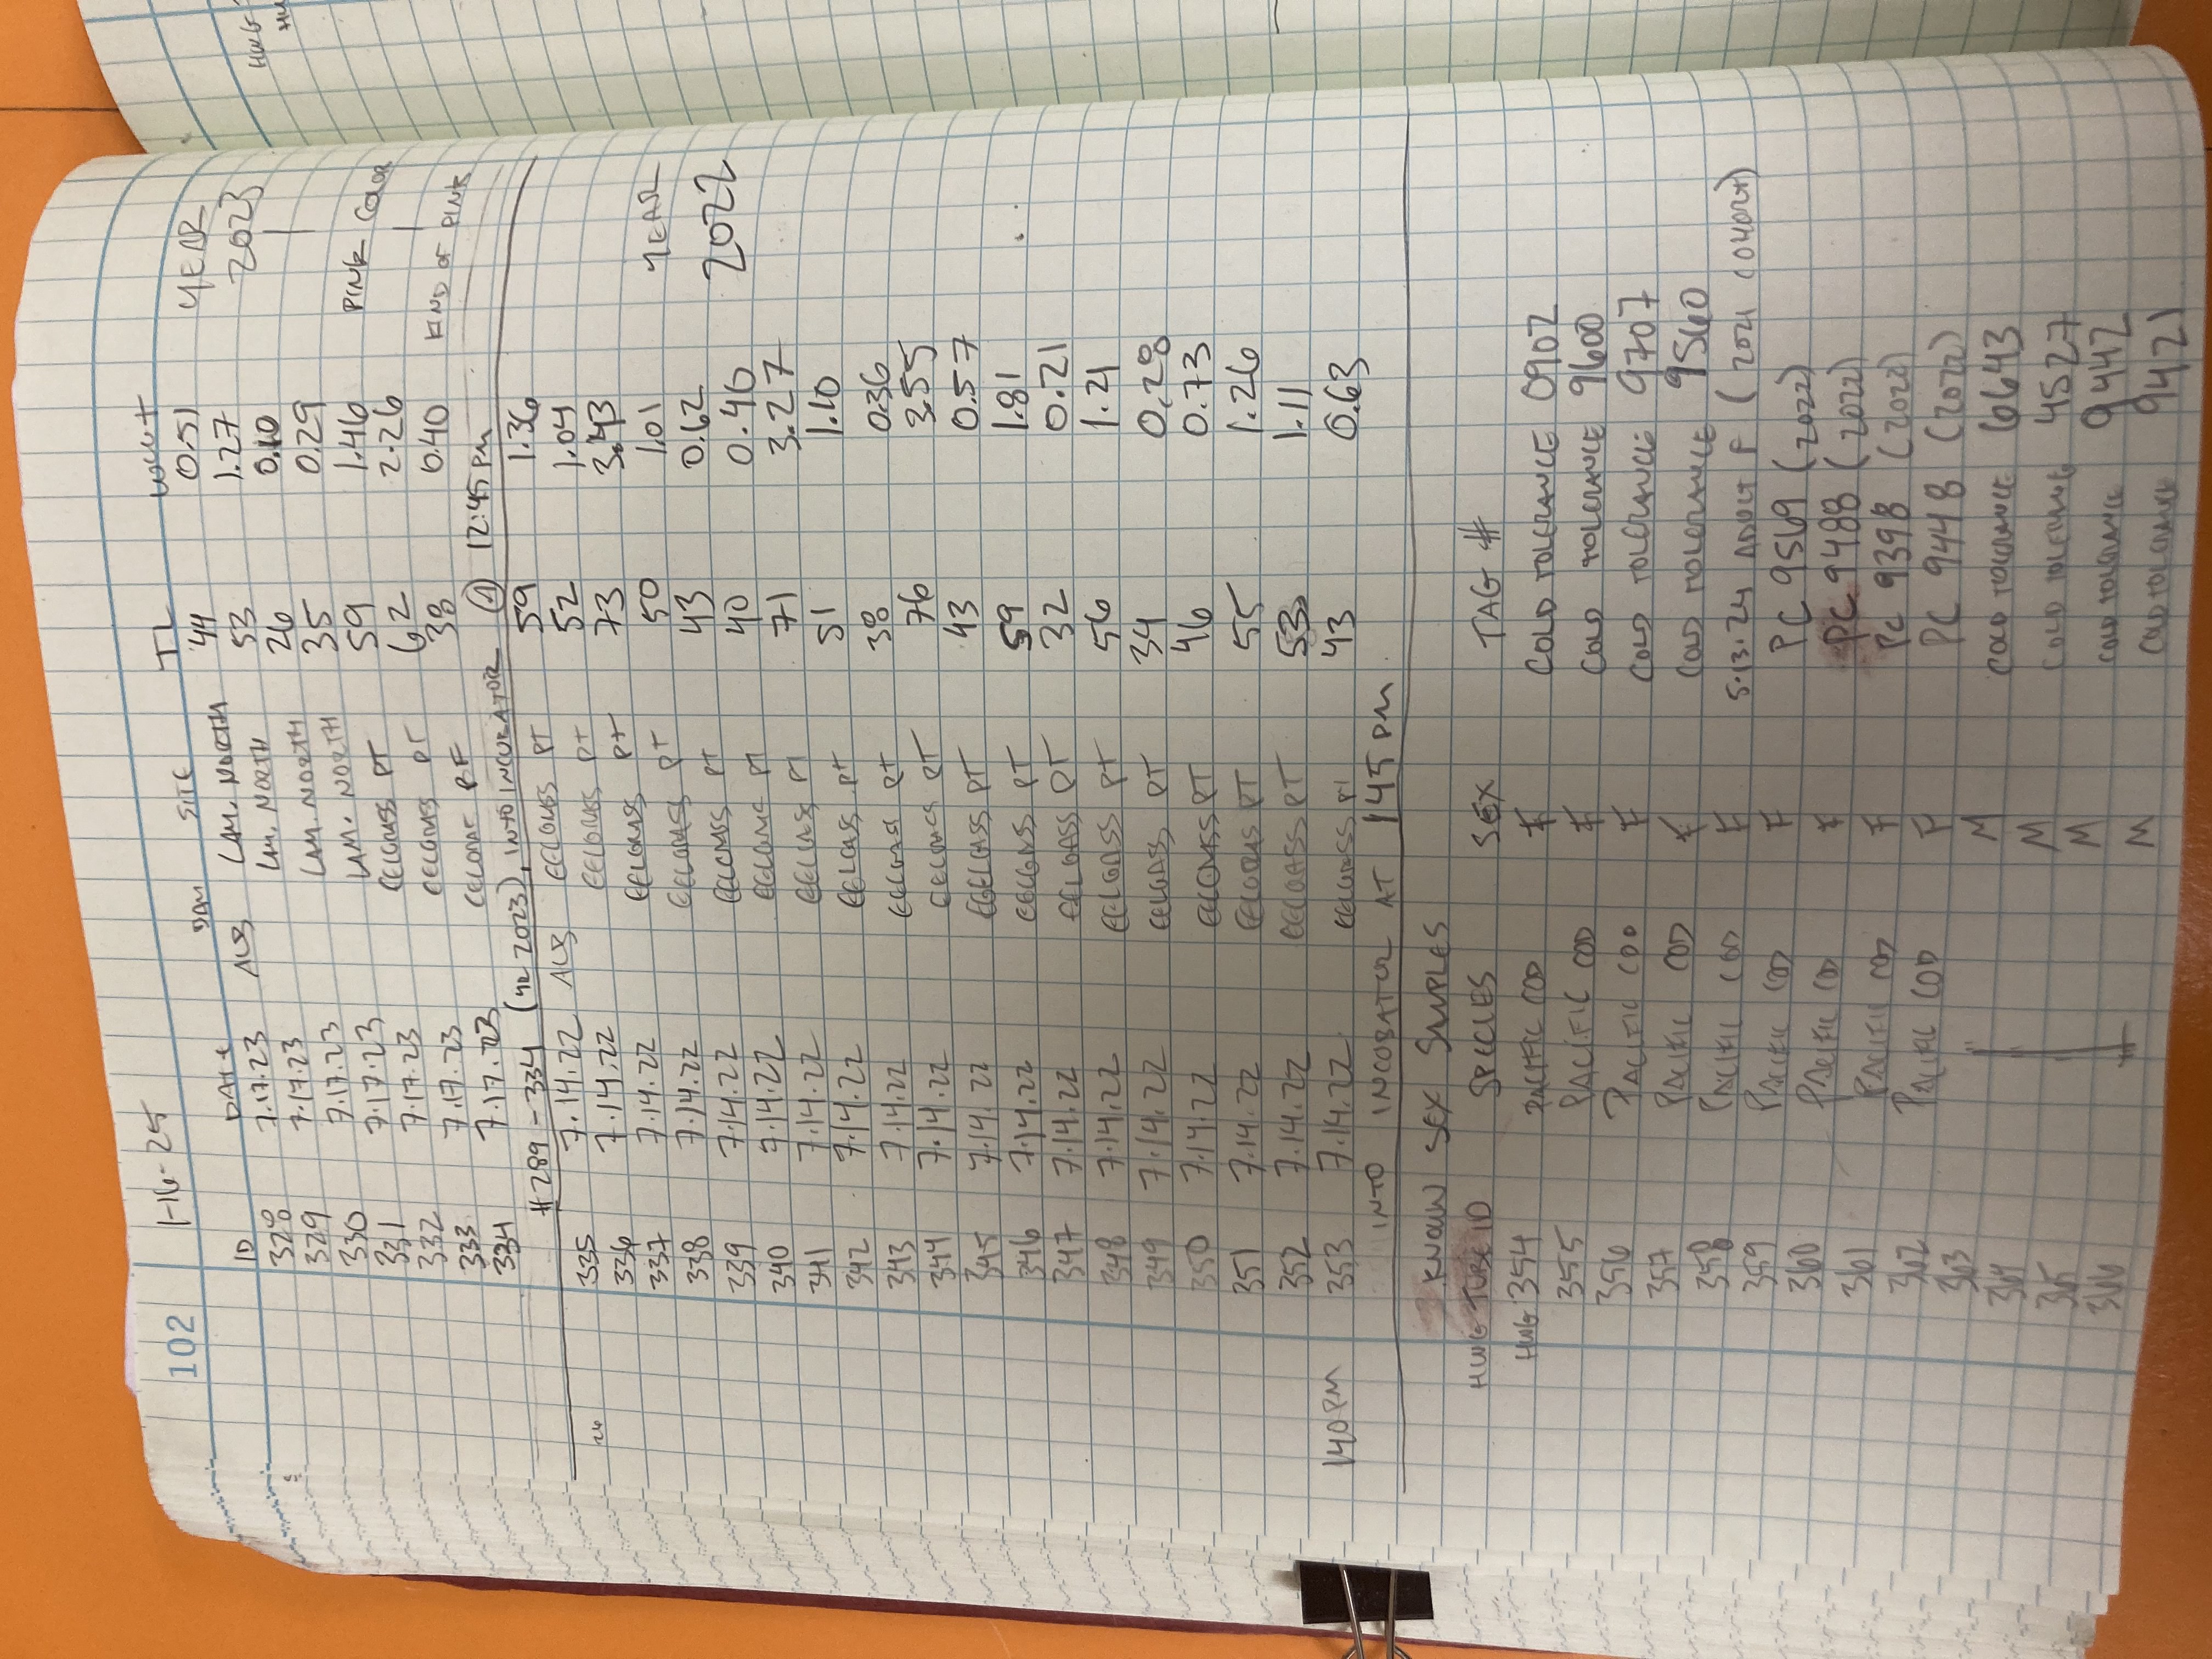 102 1-16-25
ID DATE BAY SITE TL WEIGHT YEAR
328 7.17.23 ALB LAM. NORTH 44 0.51 2023
329 7.17.23 LAM. NORTH 53 1.27
330 7.17.23 LAM. NORTH 26 0.10
331 7.17.23 LAM. NORTH 35 0.29
332 7.17.23 EELGRASS PT 59 1.46 PINK COLOR
333 7.17.23 EELGRASS PT 62 2.26
334 7.17.23 38 0.40 KIND OF PINK
#289-334 (YR 2023), INTO INCUBATOR 1 12:45 PM
335 7.14.22 ALB EELGRASS PT 59 1.36
336 7.14.22 EELGRASS PT 52 1.04
337 7.14.22 EELGRASS PT 73 3.43
338 7.14.22 EELGRASS PT 50 1.01 YEAR
339 7.14.22 EELGRASS PT 43 0.62 2022
340 7.14.22 EELGRASS PT 40 0.46
341 7.14.22 EELGRASS PT 71 3.27
342 7.14.22 EELGRASS PT 51 1.10
343 7.14.22 EELGRASS PT 38 0.36
344 7.14.22 EELGRASS PT 76 3.55
345 7.14.22 EEELGASS PT 43 0.57
346 7.14.22 EELGRASS PT 59 1.81
347 7.14.22 EELGASS PT 32 0.21
348 7.14.22 EELGRASS PT 56 1.21
349 7.14.22 EELGASS PT 34 0.28
350 7.14.22 EELGRASS PT 46 0.73
351 7.14.22 EELGRASS PT 55 1.26
352 7.14.22 EELGRASS PT 53 1.11
140 PM 353 7.14.22 EELGRASS PT 43 0.63
INTO INCUBATOR AT 145 PM
KNOWN SEX SAMPLES
HWG TUBE ID SPECIES SEX TAG #
HWG 354 PACIFIC COD F COLD TOLERANCE 0902
355 PACIFIC COD F COLD TOLERANCE 9600
356 PACIFIC COD F COLD TOLERANCE 9707
357 PACIFIC COD F COLD TOLERANCE 9560
358 PACIFIC COD F 5.13.24 ADULT F (2021 COHORT)
359 PACIFIC COD F PC 9569 (2022)
360 PACIFIC COD F PC 9488 (2022)
361 PACIFIC COD F PC 9398 (2022)
362 PACIFIC COD F PC 9448 (2022)
363 M COLD TOLERANCE 6643
364 M COLD TOLERANCE 4527
365 M COLD TOLERANCE 9442
366 M COLD TOLERANCE 9421
HWG